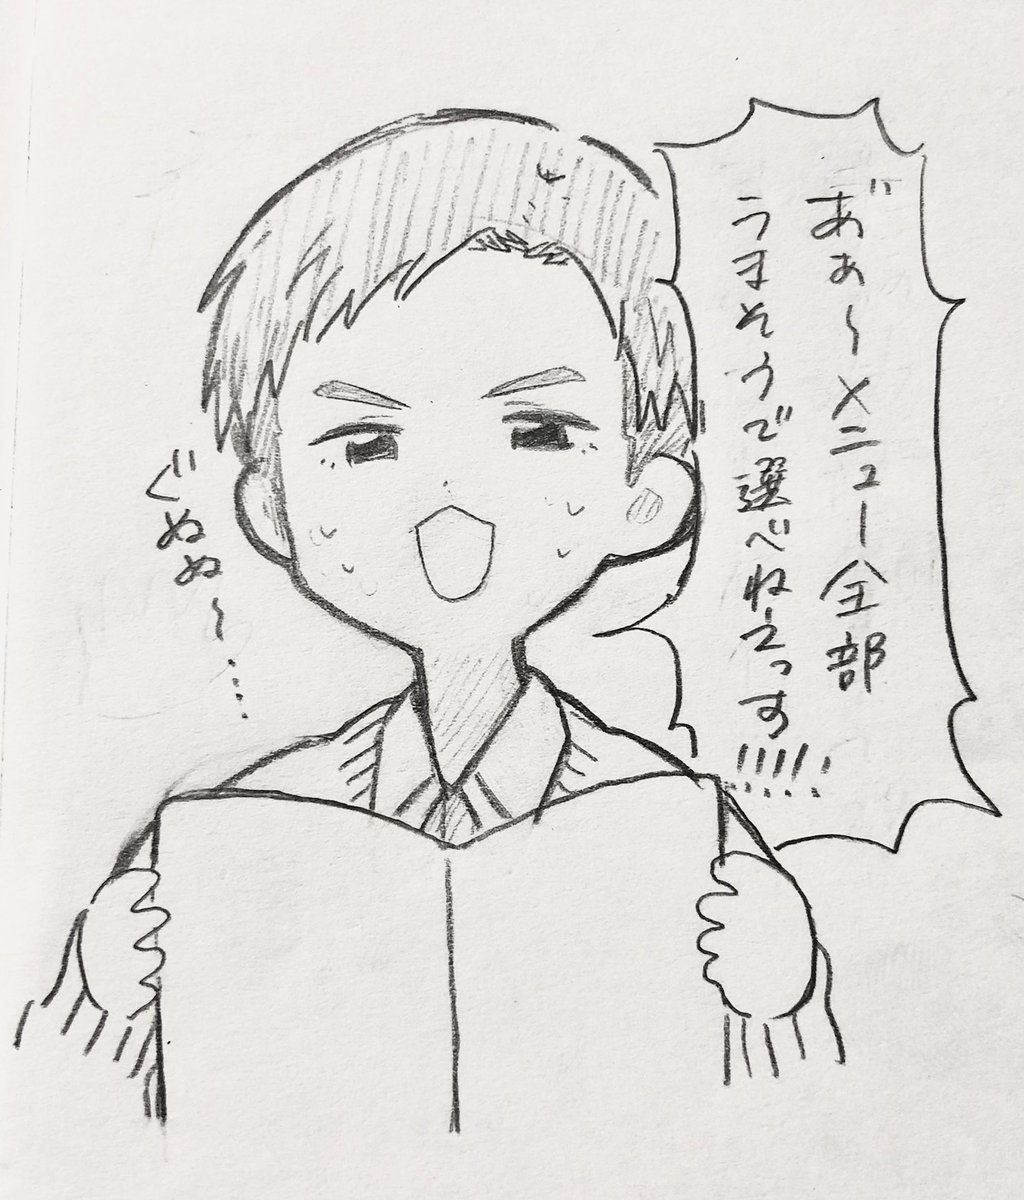 あ゛ぁ〜メニュー全部
うまそうで選べねえっす!!!!!
ぐぬぬ〜……